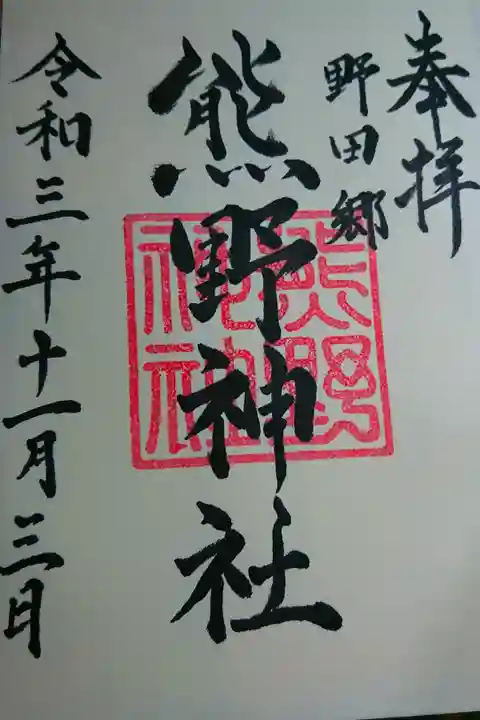 奉拝
野田郷
熊野神社
令和三年十一月三日
熊野
神社